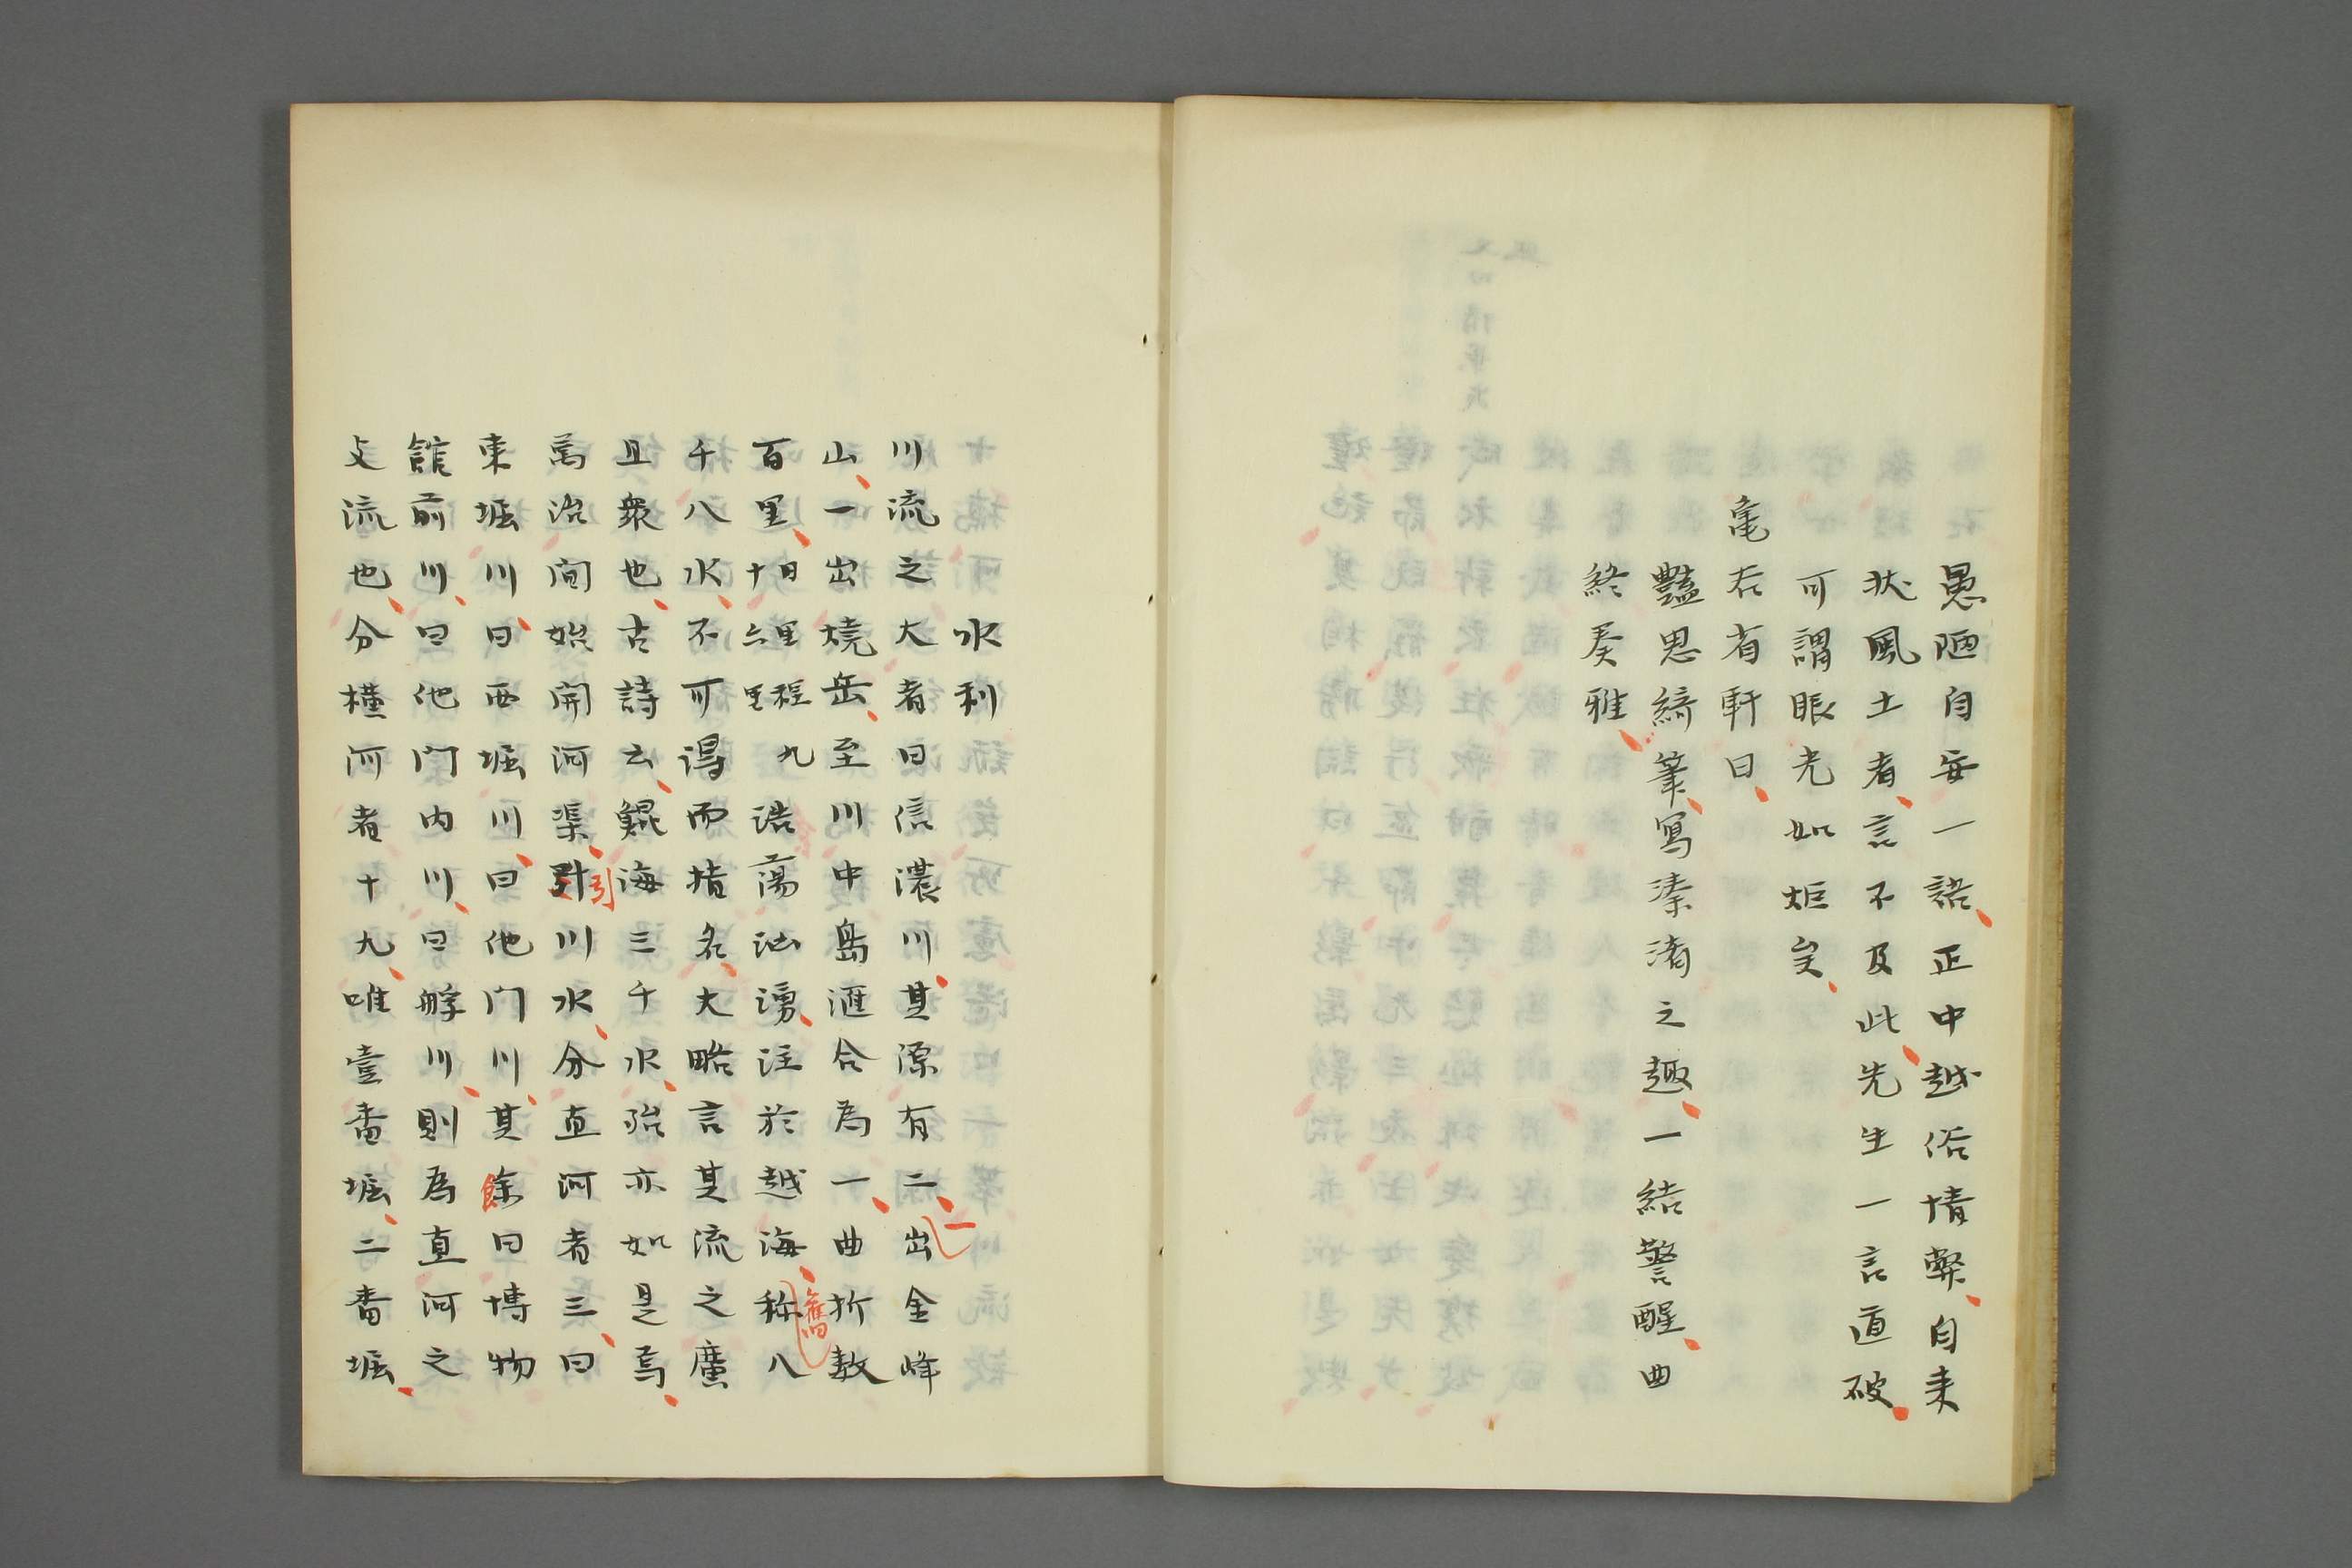 愚陋自安一語正中越俗情弊自来
状風土者言不及此先生一言道破
可謂眼光如炬矣
亀石有軒曰
豔思綺筆寫溱洧之趣一結警醒曲
終奏雅
水利
川流之大者曰信濃川其源有二一出金峰
山一出燒岳至川中島滙合為一曲折数
百里十日六里里程九浩蕩汹湧注於越海舊称八
千八水不可得而指名大略言其流之廣
且衆也古詩云鯤海三千水殆亦如是焉
萬治間始開河渠引川水分直河者三曰
東堀川曰西堀川曰他門川其餘曰博物
館前川曰他門内川曰艀川則為直河之
支流也分横河者十九唯壹番堀二番堀